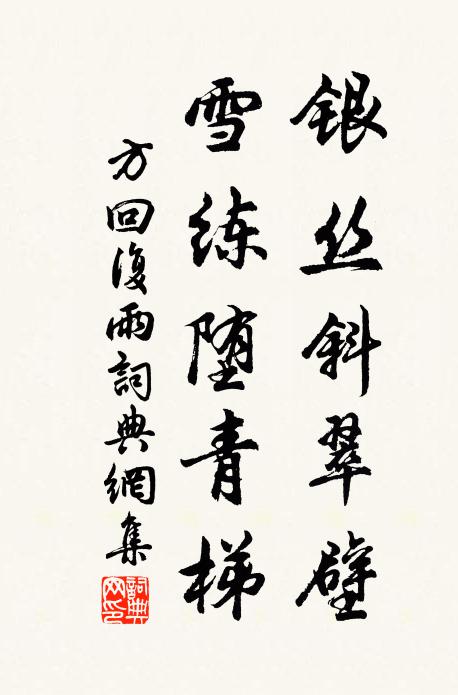 银丝斜翠壁
雪练堕青梯
方回復雨詞典網集
詞典网印